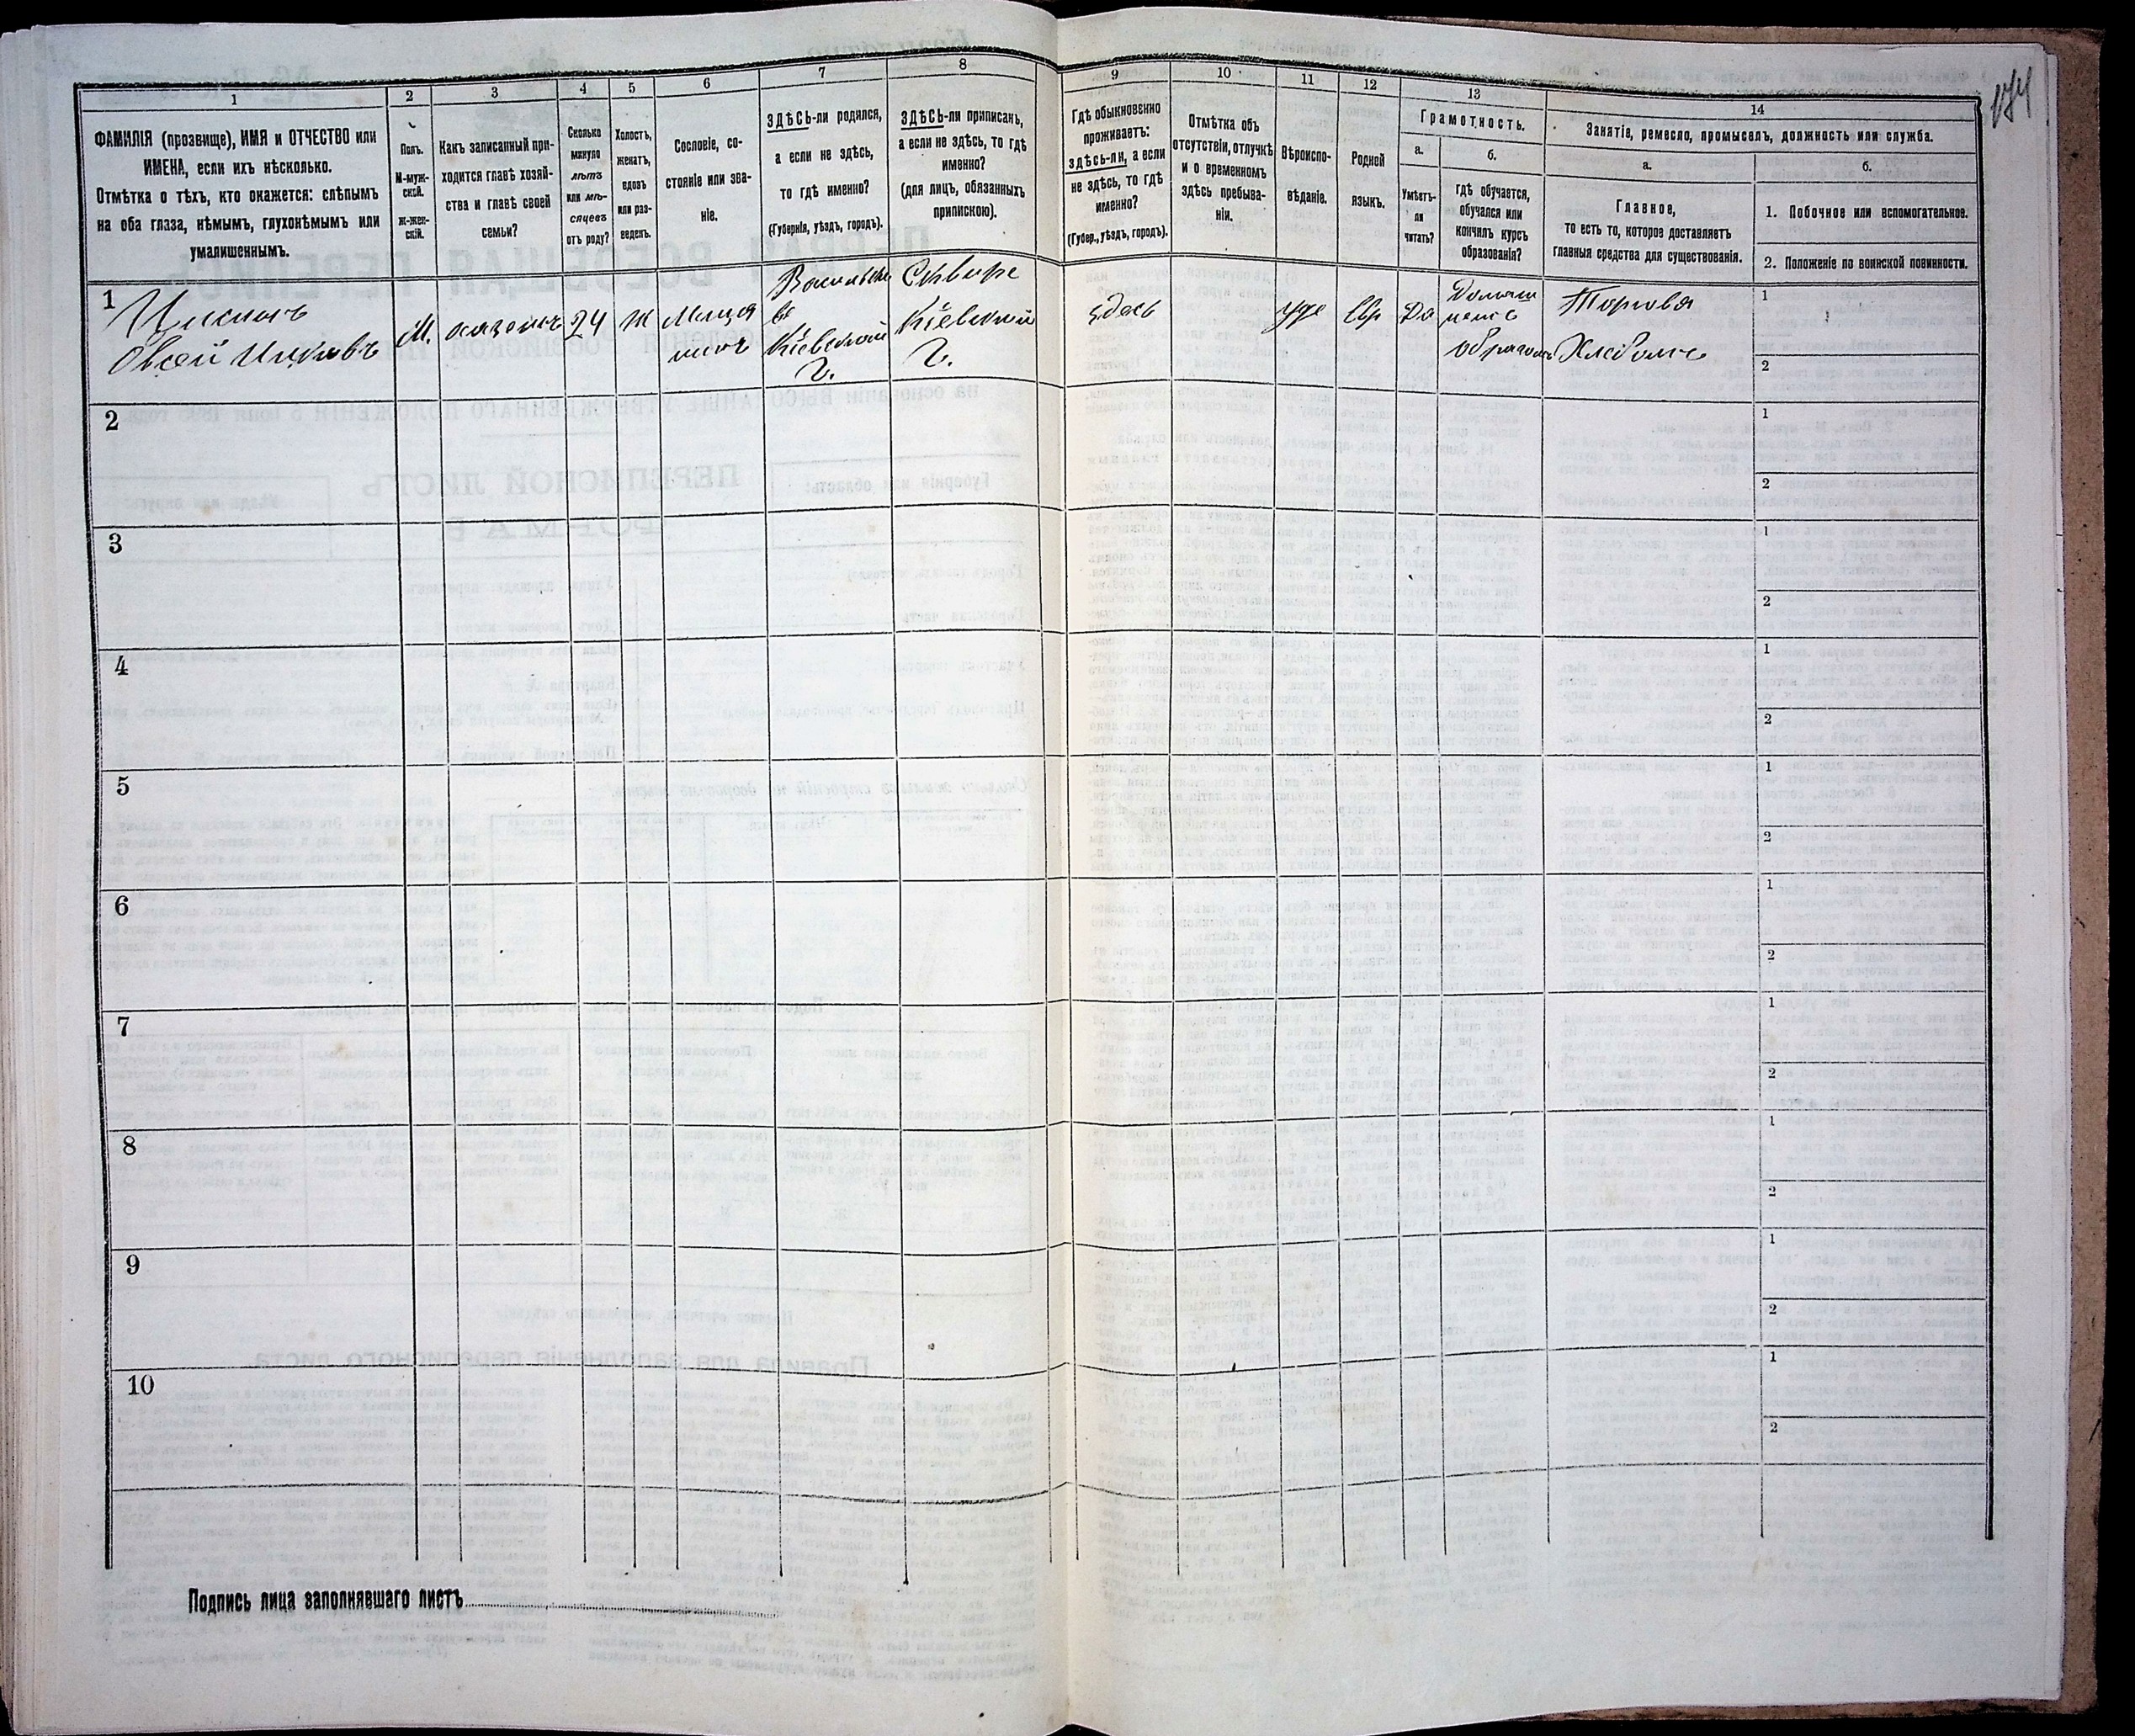 174
1
ФАМИЛІЯ (прозвище), ИМЯ и ОТЧЕСТВО или
ИМЕНА, если ихъ нѣсколько.
Отмѣтка о тѣхъ, кто окажется: слѣпымъ
на оба глаза, нѣмымъ, глухонѣмымъ или
умалишеннымъ.
2
Полъ.
М-муж-
ской.
ж-жен-
скій.
3
Какъ записанный при-
ходится главѣ хозяй-
ства и главѣ своей
семьи?
4
Сколько
минуло
лѣтъ
или мѣ-
сяцевъ
отъ роду?
5
Холостъ,
женатъ,
вдовъ
или раз-
веденъ.
6
Сословіе, со-
стояніе или зва-
ніе.
7
ЗДѢСЬ-ли родился,
а если не здѣсь,
то гдѣ именно?
(Губернія, уѣздъ, городъ).
8
ЗДѢСЬ-ли приписанъ,
а если не здѣсь, то гдѣ
именно?
(для лицъ, обязанныхъ
припискою).
9
Гдѣ обыкновенно
проживаетъ:
здѣсь-ли, а если
не здѣсь, то гдѣ
именно?
(Губер., уѣздъ, городъ).
10
Отмѣтка объ
отсутствіи, отлучкѣ
и о временномъ
здѣсь пребыва-
ніи.
11
Вѣроиспо-
вѣданіе.
12
Родной
языкъ.
13
Грамотность.
а.
Умѣетъ-
ли
читать?
б.
гдѣ обучается,
обучался или
кончилъ курсъ
образованія?
14
Занятіе, ремесло, промыселъ, должность или служба.
а.
Главное,
то есть то, которое доставляетъ
главныя средства для существованія.
б.
1. Побочное или вспомогательное.
2. Положеніе по воинской повинности.
1
Овсей
М.
24
Ж
Мѣща
нинъ
Кіевской
Г.
Сквире
Кіевской
Г.
здесь
Иуде
Евр
Да
Домаш
Торговля
1
2
2
1
2
3
1
2
4
1
2
5
1
2
6
1
2
7
1
2
8
1
2
9
1
2
10
1
2
Подпись лица заполнявшаго листъ